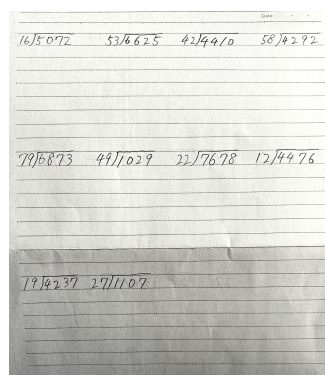 Date
16)5072 53)6625 42)4410 58)4292
79)6873 49)1029 22)7678 12)4476
19)4237 27)1107